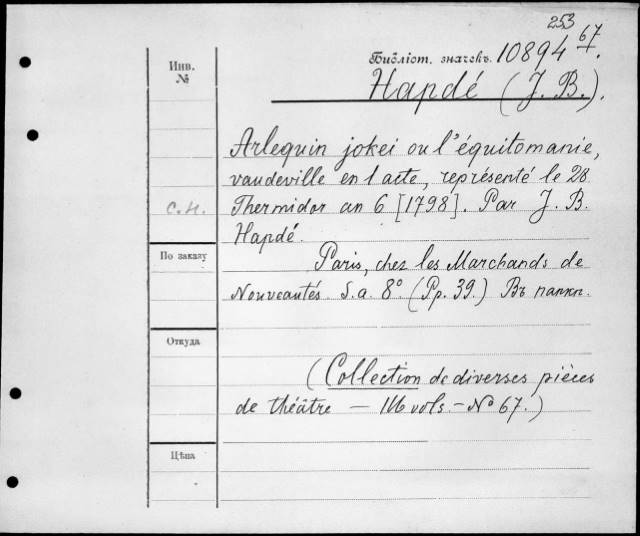 253
Библіот. значекъ. 10894 67/+.
Инв.
№
Hapdé (J. B.).
Arlequin jokei ou l'équitomanie,
vaudeville en 1 acte, représenté le 28
С.И. Thermidor an 6 [1798]. Par J. B.
Hapdé.
По заказу
Paris, chez les Marchands de
Nouveautés. S. a. 8° (Pp. 39.) Въ папкѣ.
Откуда
(Collection de diverses pièces
de théâtre — 116 vols. — № 67.)
Цѣна